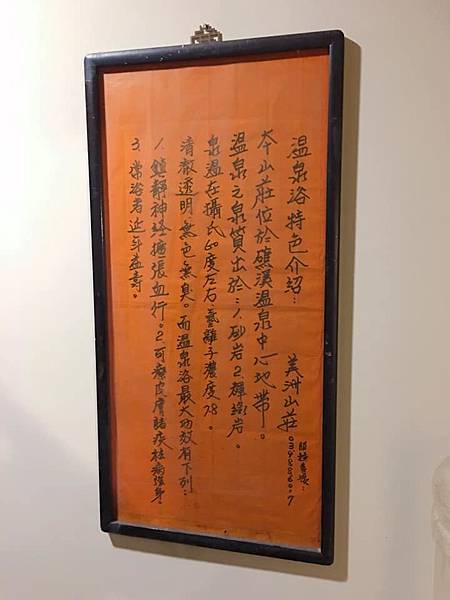 溫泉浴特色介紹：
美洲山莊
服務專線：
本山莊位於礁溪溫泉中心地帶。
溫泉之泉質出於：1.砂岩2.輝綠岩。
泉溫在攝氏60度左右，氫離子濃度7.8。
清澈透明、無色無臭。而溫泉浴最大功效有下列：
1.鎮靜神経擴張血行。2.可療皮膚諸疾袪病強身。
3.常浴者延年益壽。